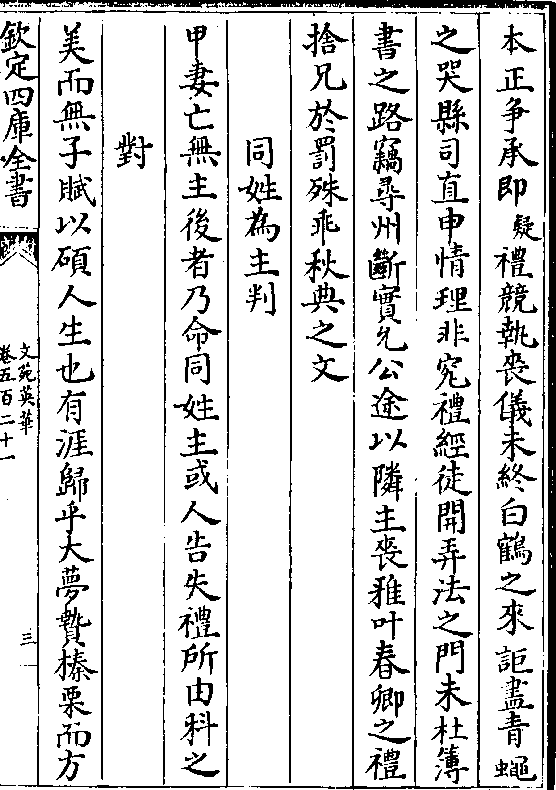 本正争承即疑禮競執喪儀未終白鶴之來詎盡青蠅
之哭縣司直申情理非究禮經徒開弄法之門未杜簿
書之路竊尋州斷實允公途以隣主喪雅叶春卿之禮
捨兄於罰殊乖秋典之文
同姓為主判
甲妻亡無主後者乃命同姓主或人告失禮所由科之
對
美而無子賦以碩人生也有涯歸乎大夢贄榛栗而方
欽定四庫全書
文苑英華
卷五百二十一
三